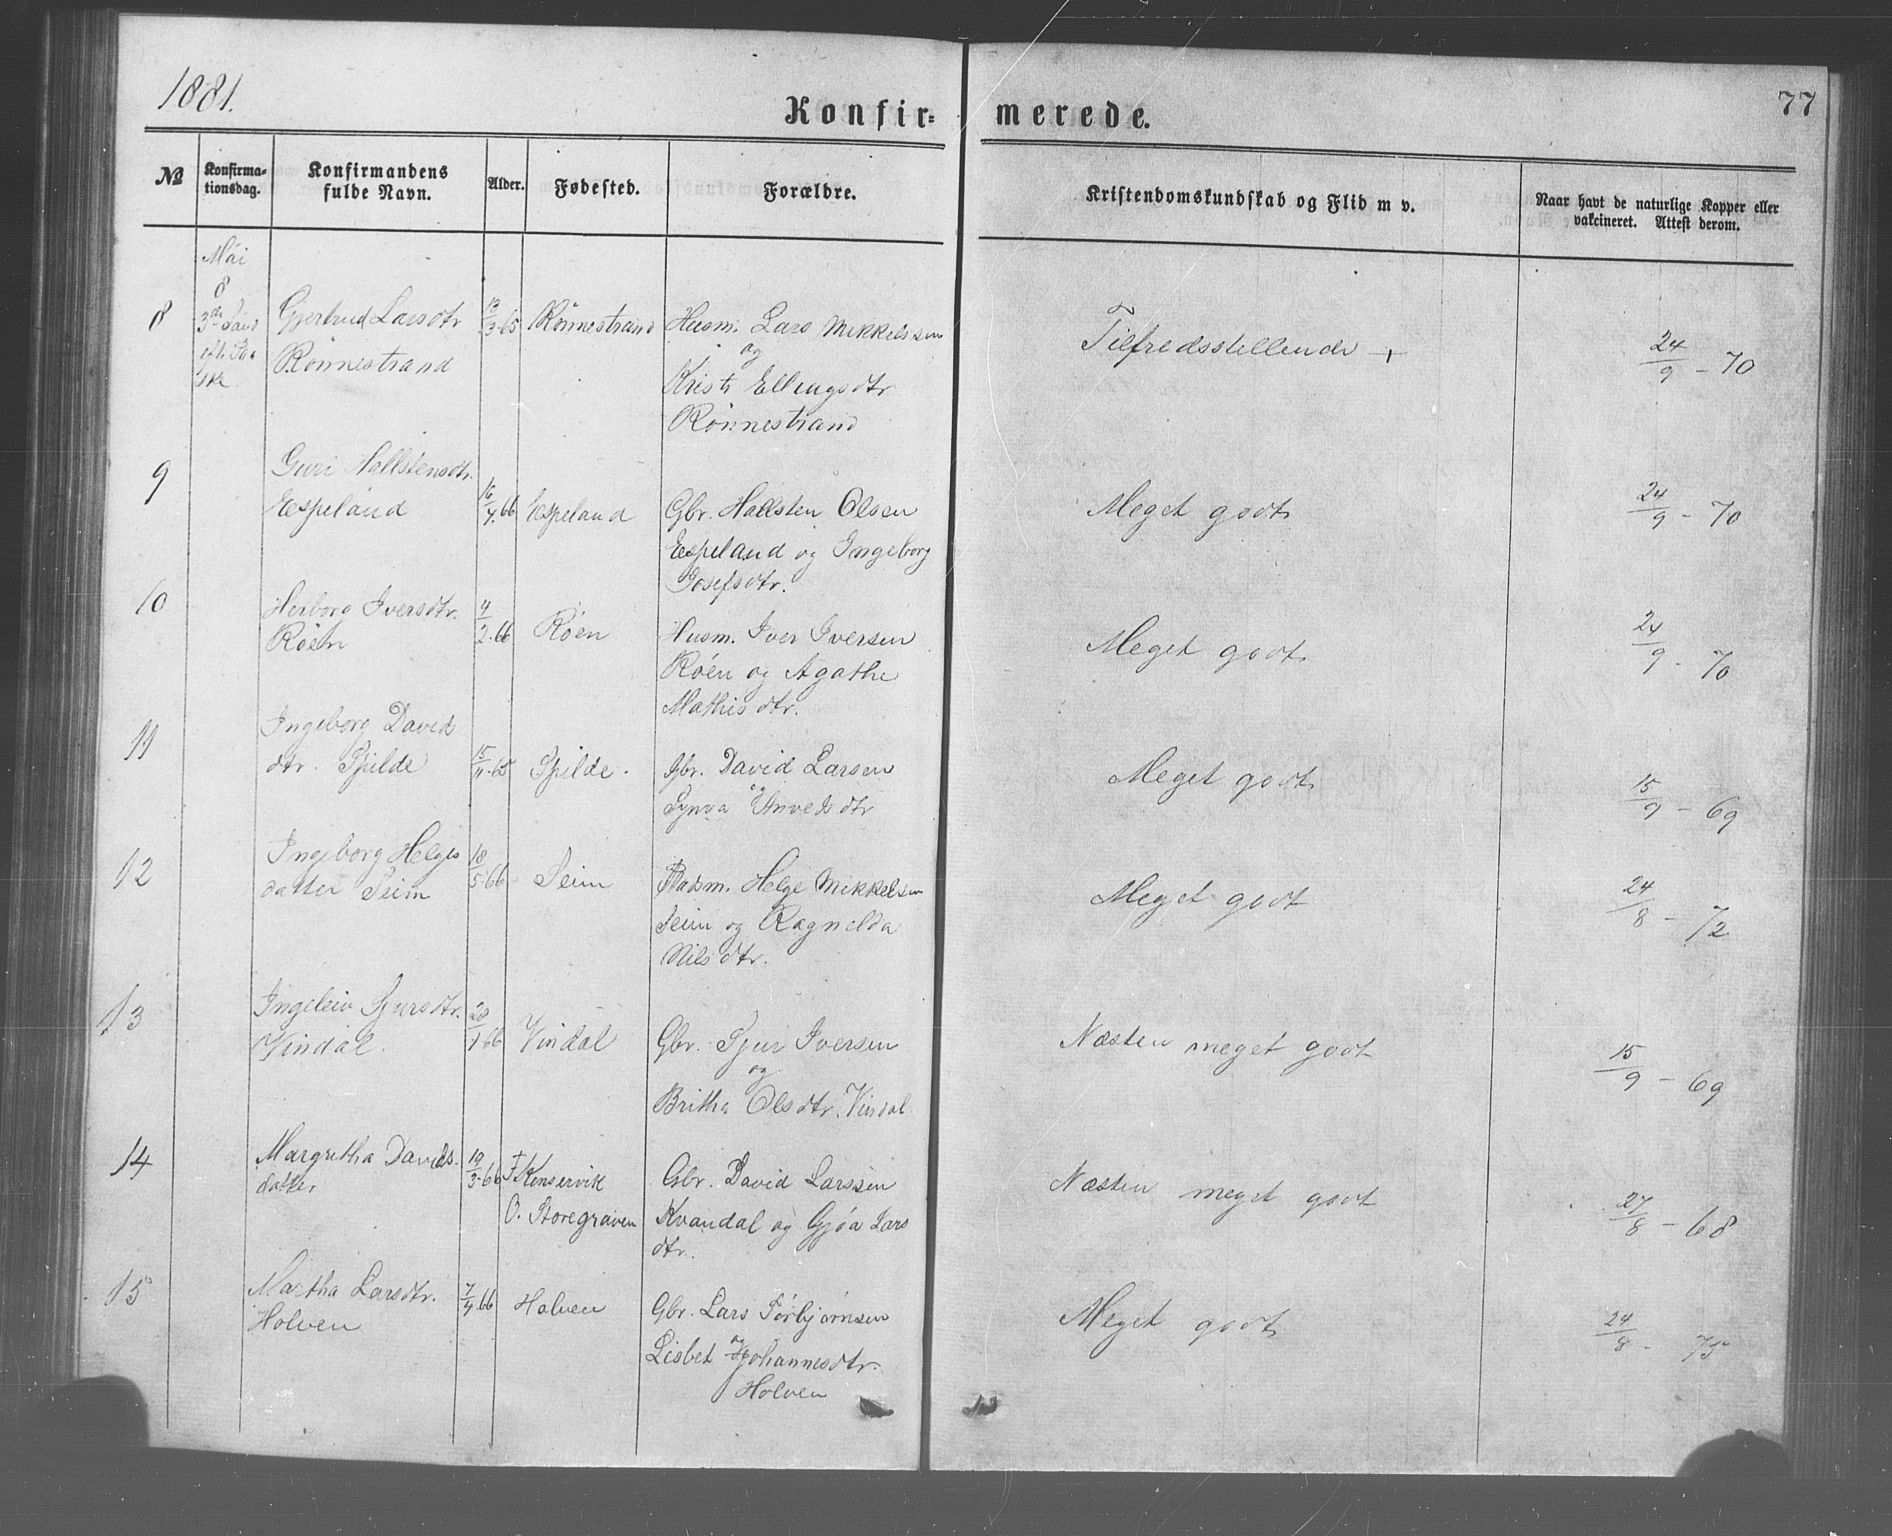 1881.
Konfir=
merede.
77
№
Konfirma-
tionsdag.
Konfirmandens
fulde Navn.
Alder.
Fødested.
Forældre.
Kristendomskundskab og Flid m v.
Naar havt de naturlige Kopper eller
vakcineret. Attest derom.
Mai
8
3die Sønd
eft. Paa
ske
8
Gjertrud Larsdtr
Rönnestrand
13/3-65
Rönnestrand
Husm. Lars Mikkelssen
og
Kristi Ellingsdtr
Rönnestrand
Tilfredsstillende +
24/9 - 70
9
Guri Hallstensdtr.
Espeland
16/4.66
Espeland
Gbr. Hallsten Olsen
Espeland og Ingeborg
Josefsdtr.
Meget godt
24/9 - 70
10
Herborg Iversdtr.
Röen
4/2.66
Röen
Husm. Iver Iversen
Röen og Agathe
Mathisdtr.
Meget godt
24/9 - 70
11
Ingeborg Davids
dtr. Spilde
15/11-65
Spilde.
Gbr. David Larsen
og
Synva
Meget godt
15/9 - 69
12
Ingeborg Helges
datter Seim
18/5-66
Seim
Helge Mikkelsen
Seim og Ragnilda
Nilsdtr.
Meget godt
24/8 - 72
13
Ingeleiv Sjursdtr.
Vindal.
28/1-66
Vindal
Gbr. Sjur Iversen
og
Britha Olsdtr. Vindal
Næsten meget godt
15/9 - 69
14
Margretha Davids-
datter
19/3-66
F. Kinservik
O. Storegraven
Gbr. David Larssen
Kvandal og Gjøa Lars
dtr.
Næsten meget godt
27/8 - 68
15
Martha Larsdtr.
Holven
7/4.66
Holven
Gbr. Lars Torbjørnsen
og
Lisbet Johannesdtr.
Holven
Meget godt
24/8 - 75